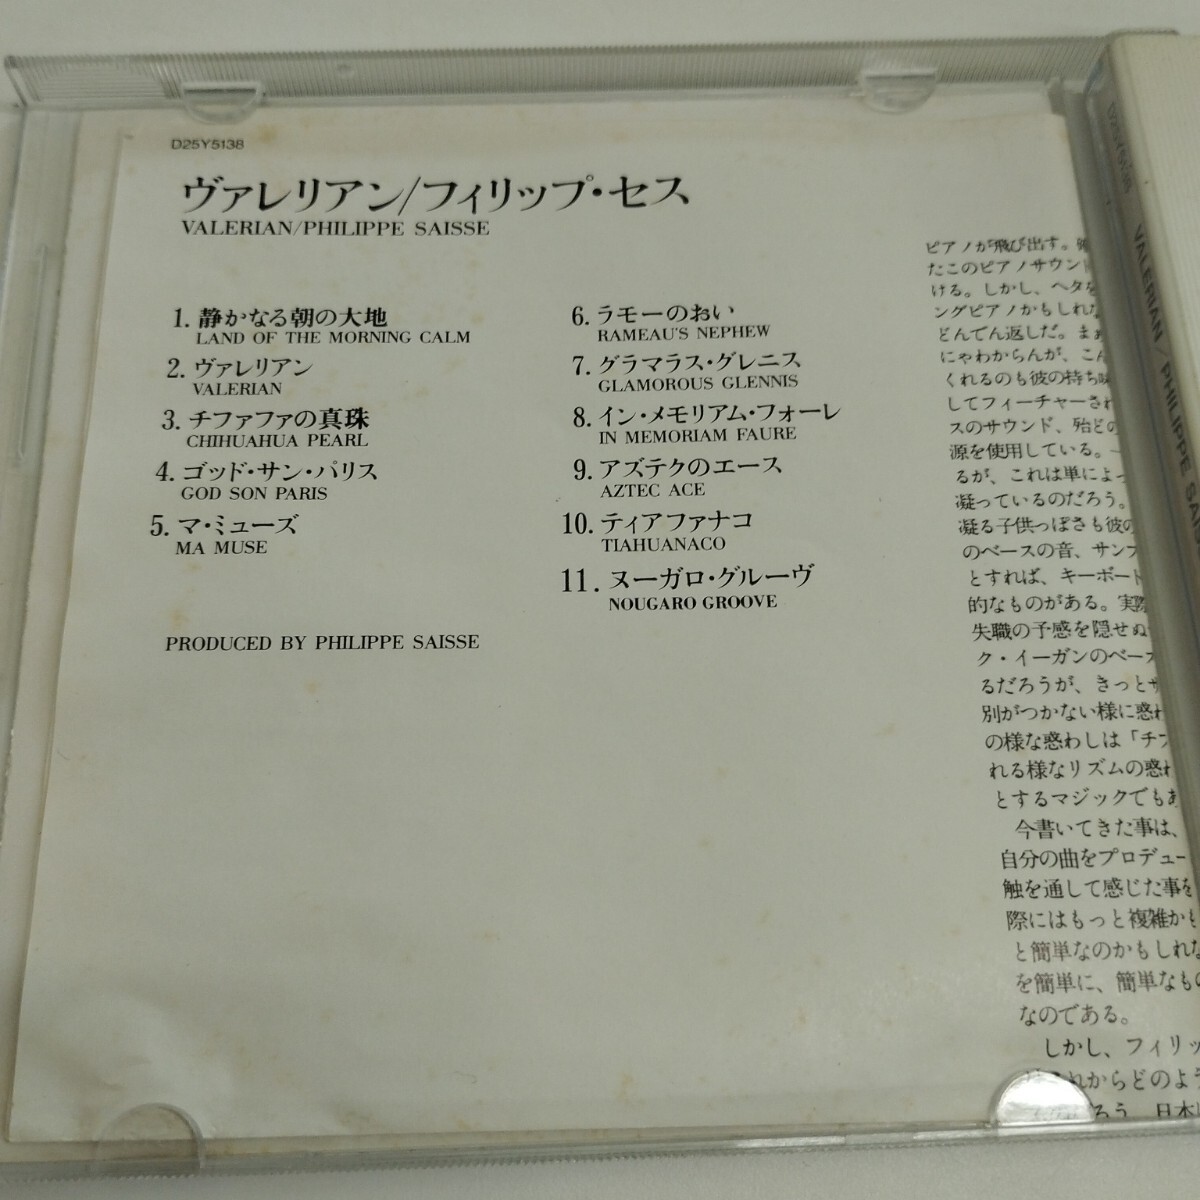 D25Y5138
ヴァレリアン/フィリップ・セス
VALERIAN/PHILIPPE SAISSE
1. 静かなる朝の大地
LAND OF THE MORNING CALM
2. ヴァレリアン
VALERIAN
3. チファファの真珠
CHIHUAHUA PEARL
4. ゴッド・サン・パリス
GOD SON PARIS
5. マ・ミューズ
MA MUSE
6. ラモーのおい
RAMEAU'S NEPHEW
7. グラマラス・グレニス
GLAMOROUS GLENNIS
8. イン・メモリアム・フォーレ
IN MEMORIAM FAURE
9. アズテクのエース
AZTEC ACE
10. ティアファナコ
TIAHUANACO
11. ヌーガロ・グルーヴ
NOUGARO GROOVE
PRODUCED BY PHILIPPE SAISSE
ピアノが飛び出す。
たこのピアノサウンド
ける。しかし、ヘタを
ングピアノかもしれな
どんでん返しだ。まぁ
にゃわからんが、こん
くれるのも彼の持ち味
してフィーチャーされ
スのサウンド、殆どの
源を使用している。
るが、これは単によっ
凝っているのだろう。
凝る子供っぽさも彼の
のベースの音、サンプ
とすれば、キーボード
的なものがある。実際
失職の予感を隠せぬ
ク・イーガンのベース
るだろうが、きっとサ
別がつかない様に惑わ
の様な惑わしは「チフ
れる様なリズムの惑わ
とするマジックでもあ
今書いてきた事は、
自分の曲をプロデュー
触を通して感じた事を
際にはもっと複雑かも
と簡単なのかもしれな
を簡単に、簡単なもの
なのである。
しかし、フィリッ
これからどのよう
ろう。日本
D25Y5138
VALERIAN/PHILIPPE SAIS